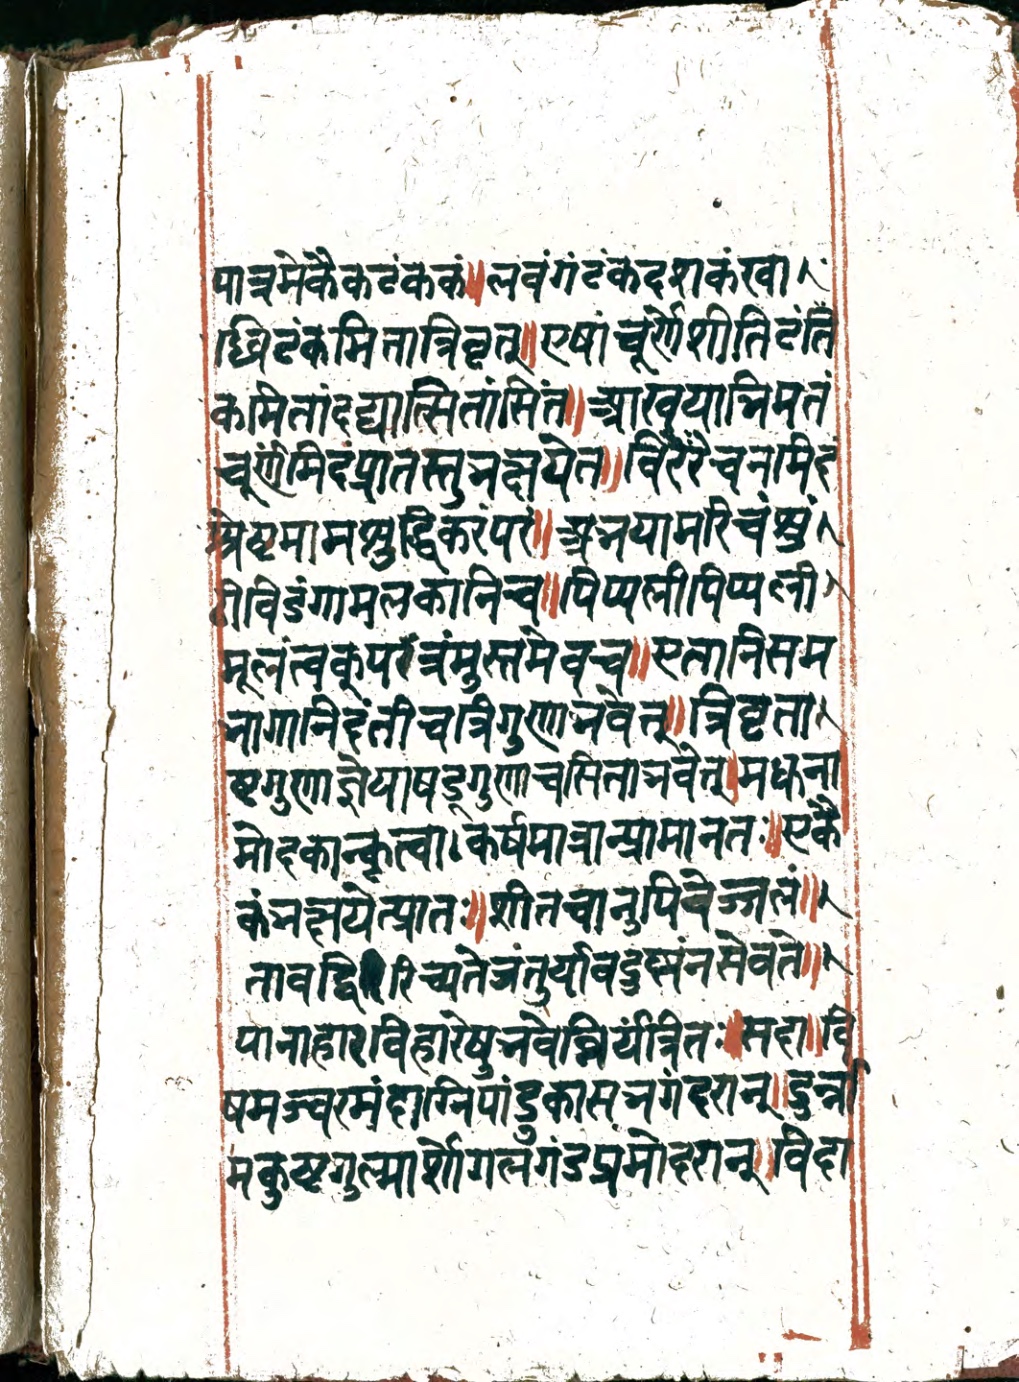 पात्रमेकैकटंककं॥लवंगंटंकदशकंखा।
द्धिटंकमितात्रिवृत्॥एषांचूर्णेशीतिटंति
कमितांदद्यात्सितांसितं॥आखुयान्निमतं
चूर्णमिदंप्रातस्तुभक्षयेत॥विरेरेचनमिदं
श्रेष्टमामशुद्धिकरंपरं॥अभयामरिचंशुं।
ठीविडंगामलकानिच॥पिप्यलीपिप्यली।
मूलंत्वक्पत्रंमुस्तमेवच॥एतानिसम
भागानिदंतीचत्रिगुणाभवेत्॥त्रिवृता।
ष्टगुणाज्ञेयाषड्गुणाचसिताभवेत्॥मधुना
मोदकान्कृत्वा।कर्षमात्रान्प्रामानतः॥एकै
कंभक्षयेत्प्रातः॥शीतचानुपिवेज्जलं॥।
तावद्विरिच्यतेजंतुर्यावदुष्मंनसेवते॥।
पानाहारविहारेषुभवेन्निर्यंत्रितःसदा॥वि
षमज्वरमंदाग्निपांडुकासभगंदरान्॥दुर्ना
मकुष्टगुल्मार्शोगलगंडभ्रमोदरान्॥विदा